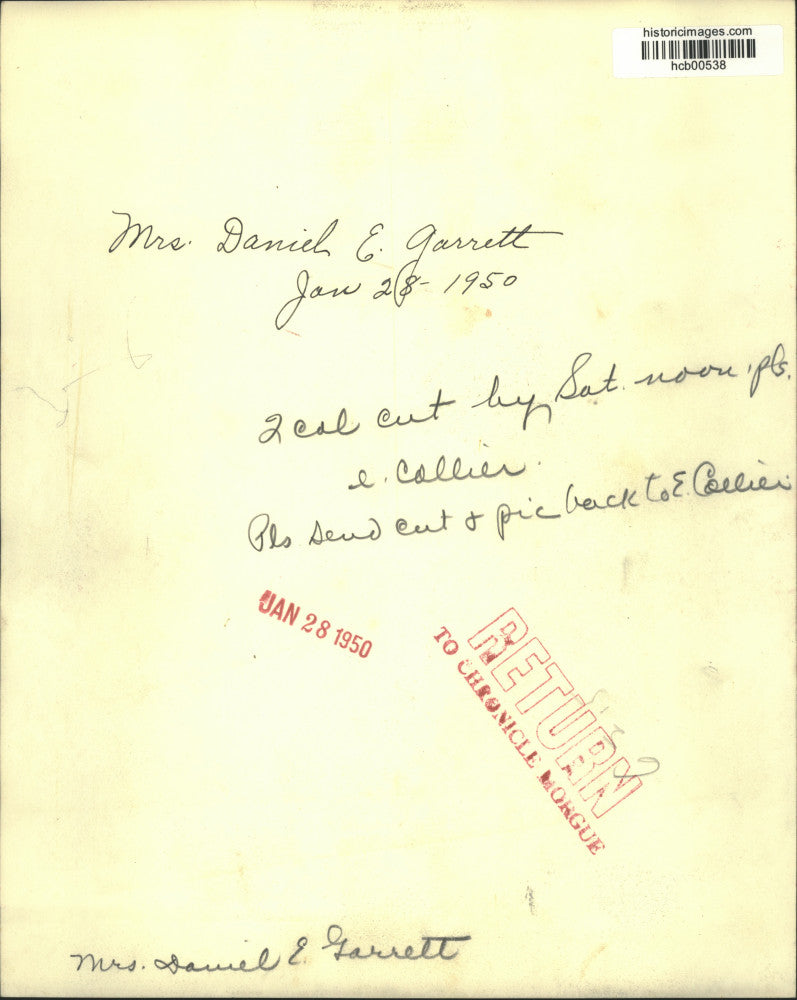 historicimages.com
hcb00538
Mrs. Daniel E. Garrett
Jan 28 - 1950
2 col cut by Sat. noon, pls.
e. Collier.
Pls send cut & pic back to E. Collier
JAN 28 1950
RETURN
TO CHRONICLE MORGUE
Mrs. Daniel E. Garrett